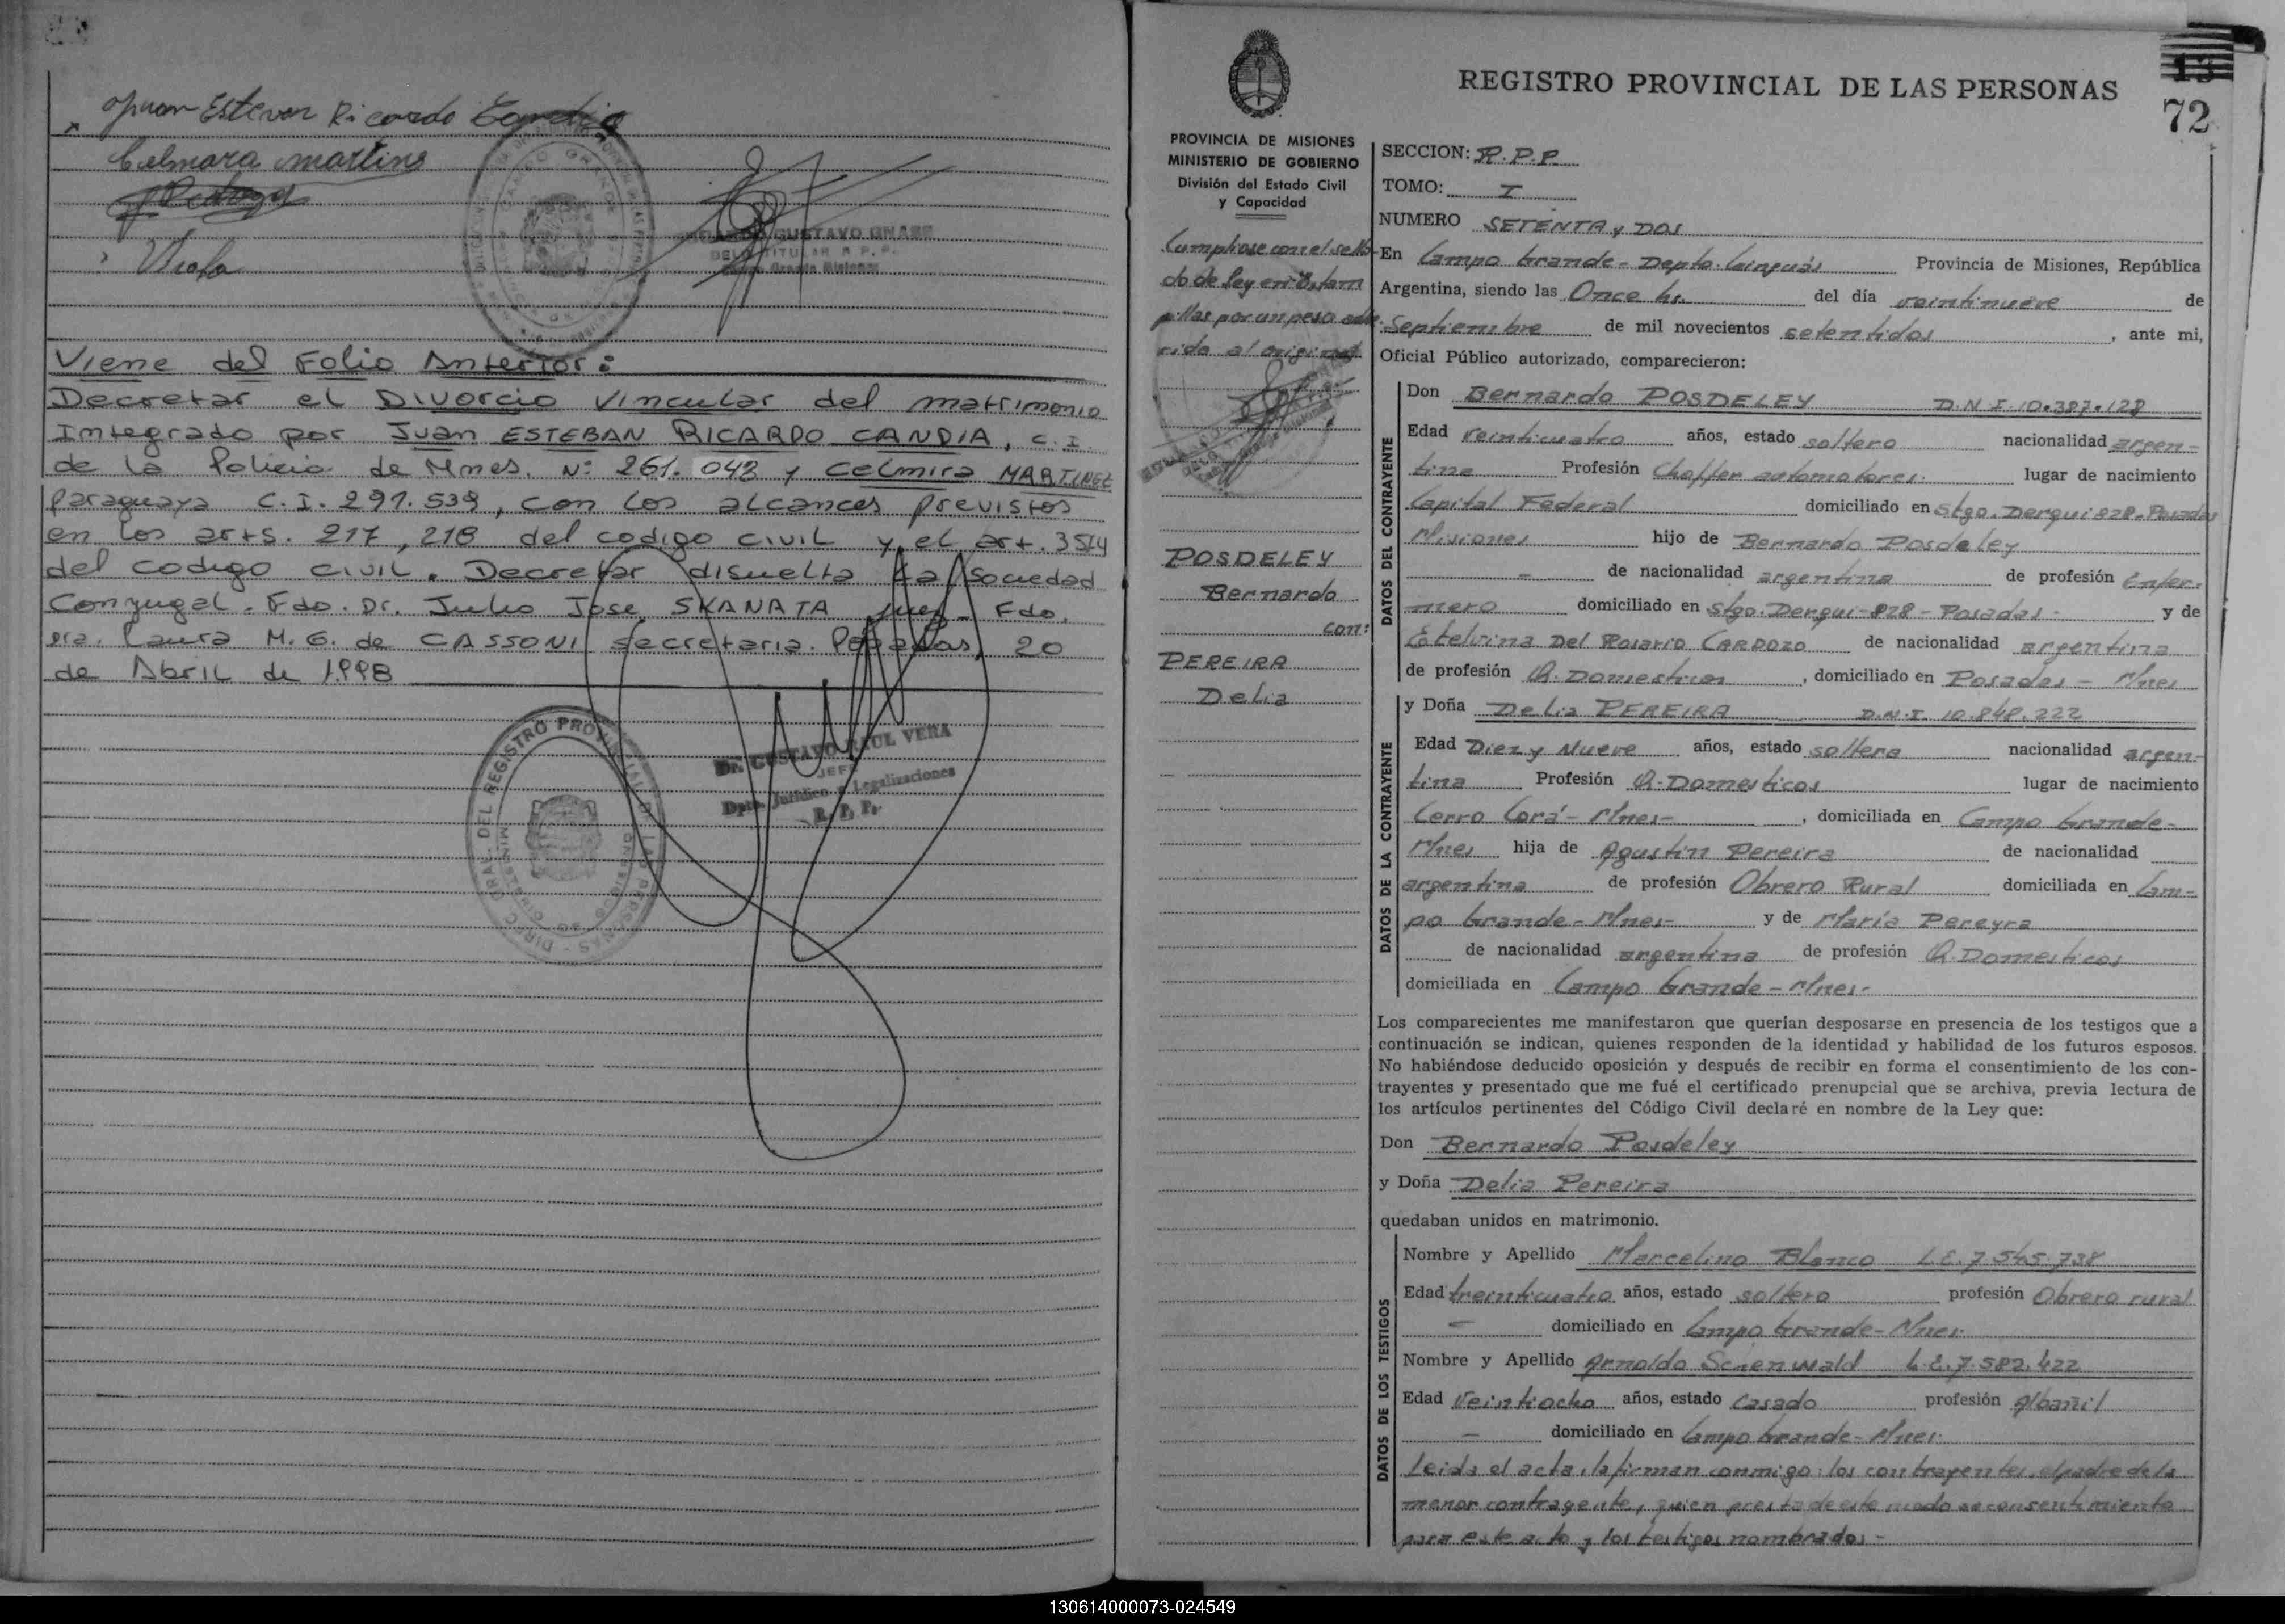 Juan Esteven Ricardo Candia
Celmara martins
Viene del Folio Anterior:
Decretar el Divorcio Vincular del matrimonio
Integrado por Juan ESTEBAN RICARDO CANDIA, C.I.
de la Policia de Mnes. Nº 261.043 y Celmira MARTINEZ
Paraguaya C.I. 291.539, con los alcances previstos
en los arts. 217, 218 del codigo civil y el art. 3574
del codigo civil. Decretar disuelta la Sociedad
Conyugal. Fdo. Dr. Julio Jose SKANATA Juez Fdo.
Dra. Laura M. G. de CASSONI secretaria. Posadas, 20
de Abril de 1998
Dr. GUSTAVO RAUL VERA
JEFE
Dpto. Jurídico y Legalizaciones
R. P. P.
13
72
REGISTRO PROVINCIAL DE LAS PERSONAS
PROVINCIA DE MISIONES
MINISTERIO DE GOBIERNO
División del Estado Civil
y Capacidad
Cumpliose con el sella-
do de ley en Estam
pillas por un peso adhe-
rido al original
POSDELEY
Bernardo
con:
PEREIRA
Delia
SECCION: R.P.P.
TOMO: I
NUMERO SETENTA y DOS
En Campo Grande - Depto. Cainguás Provincia de Misiones, República
Argentina, siendo las Once hs. del día veintinueve de
Septiembre de mil novecientos setentidos, ante mi,
Oficial Público autorizado, comparecieron:
DATOS DEL CONTRAYENTE
Don Bernardo POSDELEY D.N.I. 10.387.128
Edad Veinticuatro años, estado soltero nacionalidad argen-
tina Profesión Choffer automotores. lugar de nacimiento
Capital Federal domiciliado en Stgo. Derqui 828 - Posadas
Misiones hijo de Bernardo Posdeley
- de nacionalidad argentina de profesión Enfer-
mero domiciliado en Stgo. Derqui - 828 - Posadas - y de
Etelvina Del Rosario CARDOZO de nacionalidad argentina
de profesión Q. Domesticos, domiciliado en Posadas - Mnes
DATOS DE LA CONTRAYENTE
y Doña Delia PEREIRA D.N.I. 10.848.222
Edad Diez y Nueve años, estado soltera nacionalidad argen-
tina Profesión Q. Domesticos lugar de nacimiento
Cerro Corá - Mnes -, domiciliada en Campo Grande -
Mnes hija de Agustin Pereira de nacionalidad
argentina de profesión Obrero Rural domiciliada en Cam-
po Grande - Mnes - y de María Pereyra
de nacionalidad argentina de profesión Q. Domesticos
domiciliada en Campo Grande - Mnes -
Los comparecientes me manifestaron que querían desposarse en presencia de los testigos que a
continuación se indican, quienes responden de la identidad y habilidad de los futuros esposos.
No habiéndose deducido oposición y después de recibir en forma el consentimiento de los con-
trayentes y presentado que me fué el certificado prenupcial que se archiva, previa lectura de
los artículos pertinentes del Código Civil declaré en nombre de la Ley que:
Don Bernardo Posdeley
y Doña Delia Pereira
quedaban unidos en matrimonio.
DATOS DE LOS TESTIGOS
Nombre y Apellido Marcelino Blanco L.E. 7.545.738
Edad treinticuatro años, estado soltero profesión Obrero rural
- domiciliado en Campo Grande - Mnes.
Nombre y Apellido Arnoldo Scienwald L.E. 7.582.422
Edad Veintiocho años, estado Casado profesión Albañil
- domiciliado en Campo Grande - Mnes.
Leida el acta, la firman conmigo: los contrayentes, el padre de la
menor contrayente, quien presta de este modo su consentimiento
para este acto y los testigos nombrados -
130614000073-024549